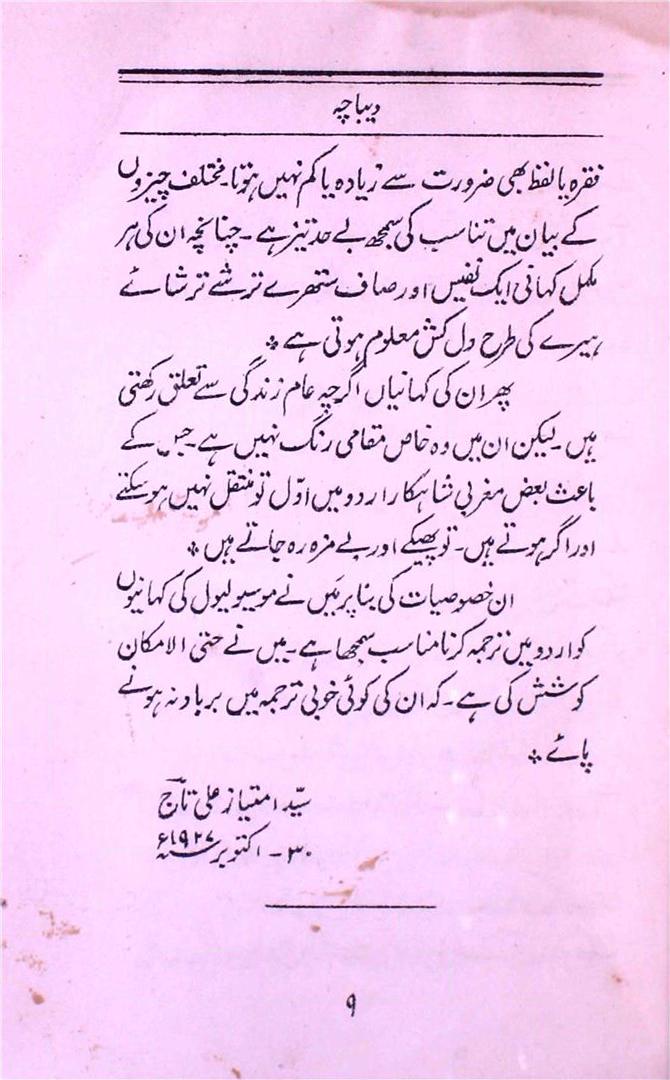 دیباچہ
فقرہ یا لفظ بھی ضرورت سے زیادہ یا کم نہیں ہوتا۔ مختلف چیزوں
کے بیان میں تناسب کی سمجھ بے حد تیز ہے۔ چنانچہ ان کی ہر
مکمل کہانی ایک نفیس اور صاف ستھرے ترشے ترشائے
ہیرے کی طرح دل کش معلوم ہوتی ہے ۔
پھر ان کی کہانیاں اگرچہ عام زندگی سے تعلق رکھتی
ہیں۔ لیکن ان میں وہ خاص مقامی رنگ نہیں ہے۔ جس کے
باعث بعض مغربی شاہکار اردو میں اوّل تو منتقل نہیں ہو سکتے
اور اگر ہوتے ہیں۔ تو پھیکے اور بے مزہ رہ جاتے ہیں ۔
ان خصوصیات کی بنا پر میں نے موسیو لیول کی کہانیوں
کو اردو میں ترجمہ کرنا مناسب سمجھا ہے۔ میں نے حتیٰ الامکان
کوشش کی ہے۔ کہ ان کی کوئی خوبی ترجمہ میں برباد نہ ہونے
پائے ۔
سیّد امتیاز علی تاج
۳۰ - اکتوبر سنہ ۱۹۲۷ء
۹